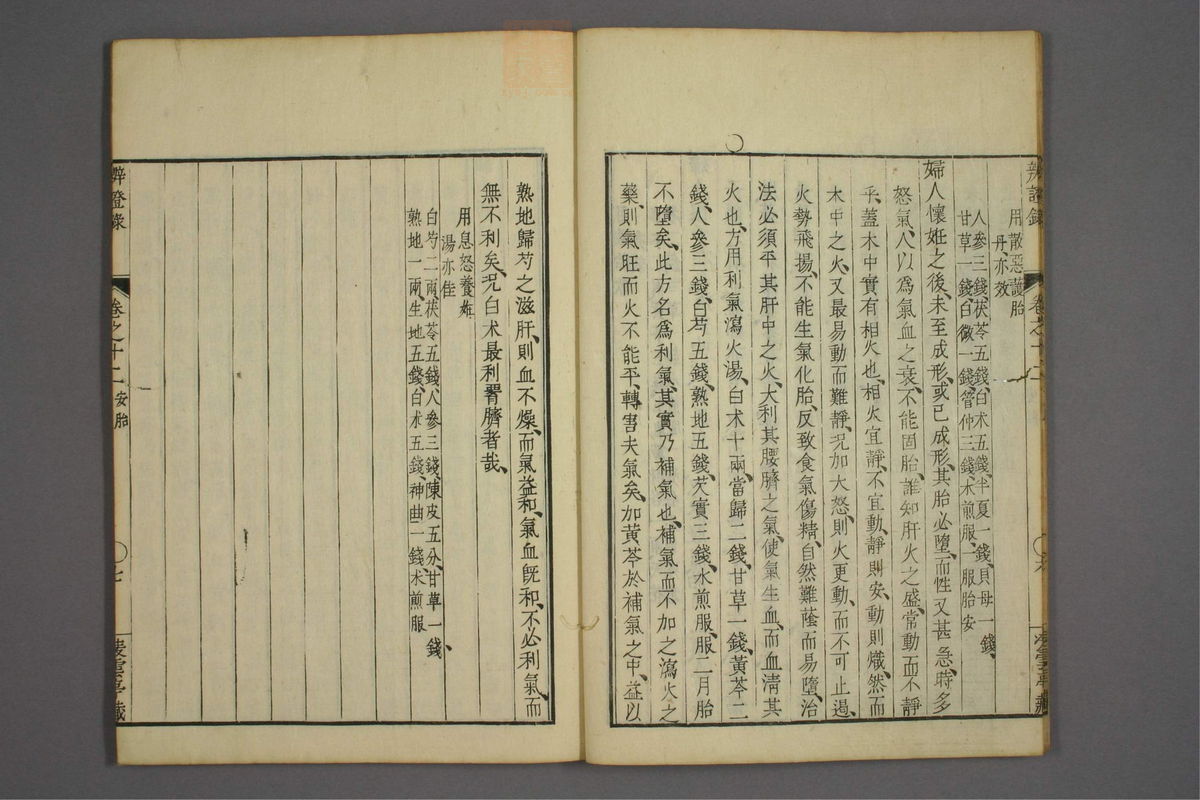 辨證錄
卷之十二
六
用散惡護胎
丹亦效
人參三錢、茯苓五錢、白朮五錢、半夏一錢、貝母一錢、
甘草一錢、白微一錢、管仲三錢、水煎服、一服胎安
婦人懷姙之後、未至成形、或已成形、其胎必墮、而性又甚急、時多
怒氣、人以爲氣血之衰、不能固胎、誰知肝火之盛、常動而不靜
乎、蓋木中實有相火也、相火宜靜、不宜動、靜則安、動則熾、然而
木中之火、又最易動而難靜、况加大怒、則火更動、而不可止遏、
火勢飛揚、不能生氣化胎、反致食氣傷精、自然難蔭而易墮、治
法必須平其肝中之火、大利其腰臍之氣、使氣生血、而血清其
火也、方用利氣瀉火湯、白朮十兩、當歸二錢、甘草一錢、黃芩二
錢、人參三錢、白芍五錢、熟地五錢、芡實三錢、水煎服、服二月胎
不墮矣、此方名爲利氣、其實乃補氣也、補氣而不加之瀉火之
藥、則氣旺而火不能平、轉害夫氣矣、加黃芩於補氣之中、益以
熟地歸芍之滋肝、則血不燥、而氣益和、氣血既和、不必利氣、而
無不利矣、况白朮最利腰臍者哉、
用息怒養姙
湯亦佳
白芍二兩、茯苓五錢、人參三錢、陳皮五分、甘草一錢、
熟地一兩、生地五錢、白朮五錢、神曲一錢、水煎服
辨證錄
卷之十二 安胎
七